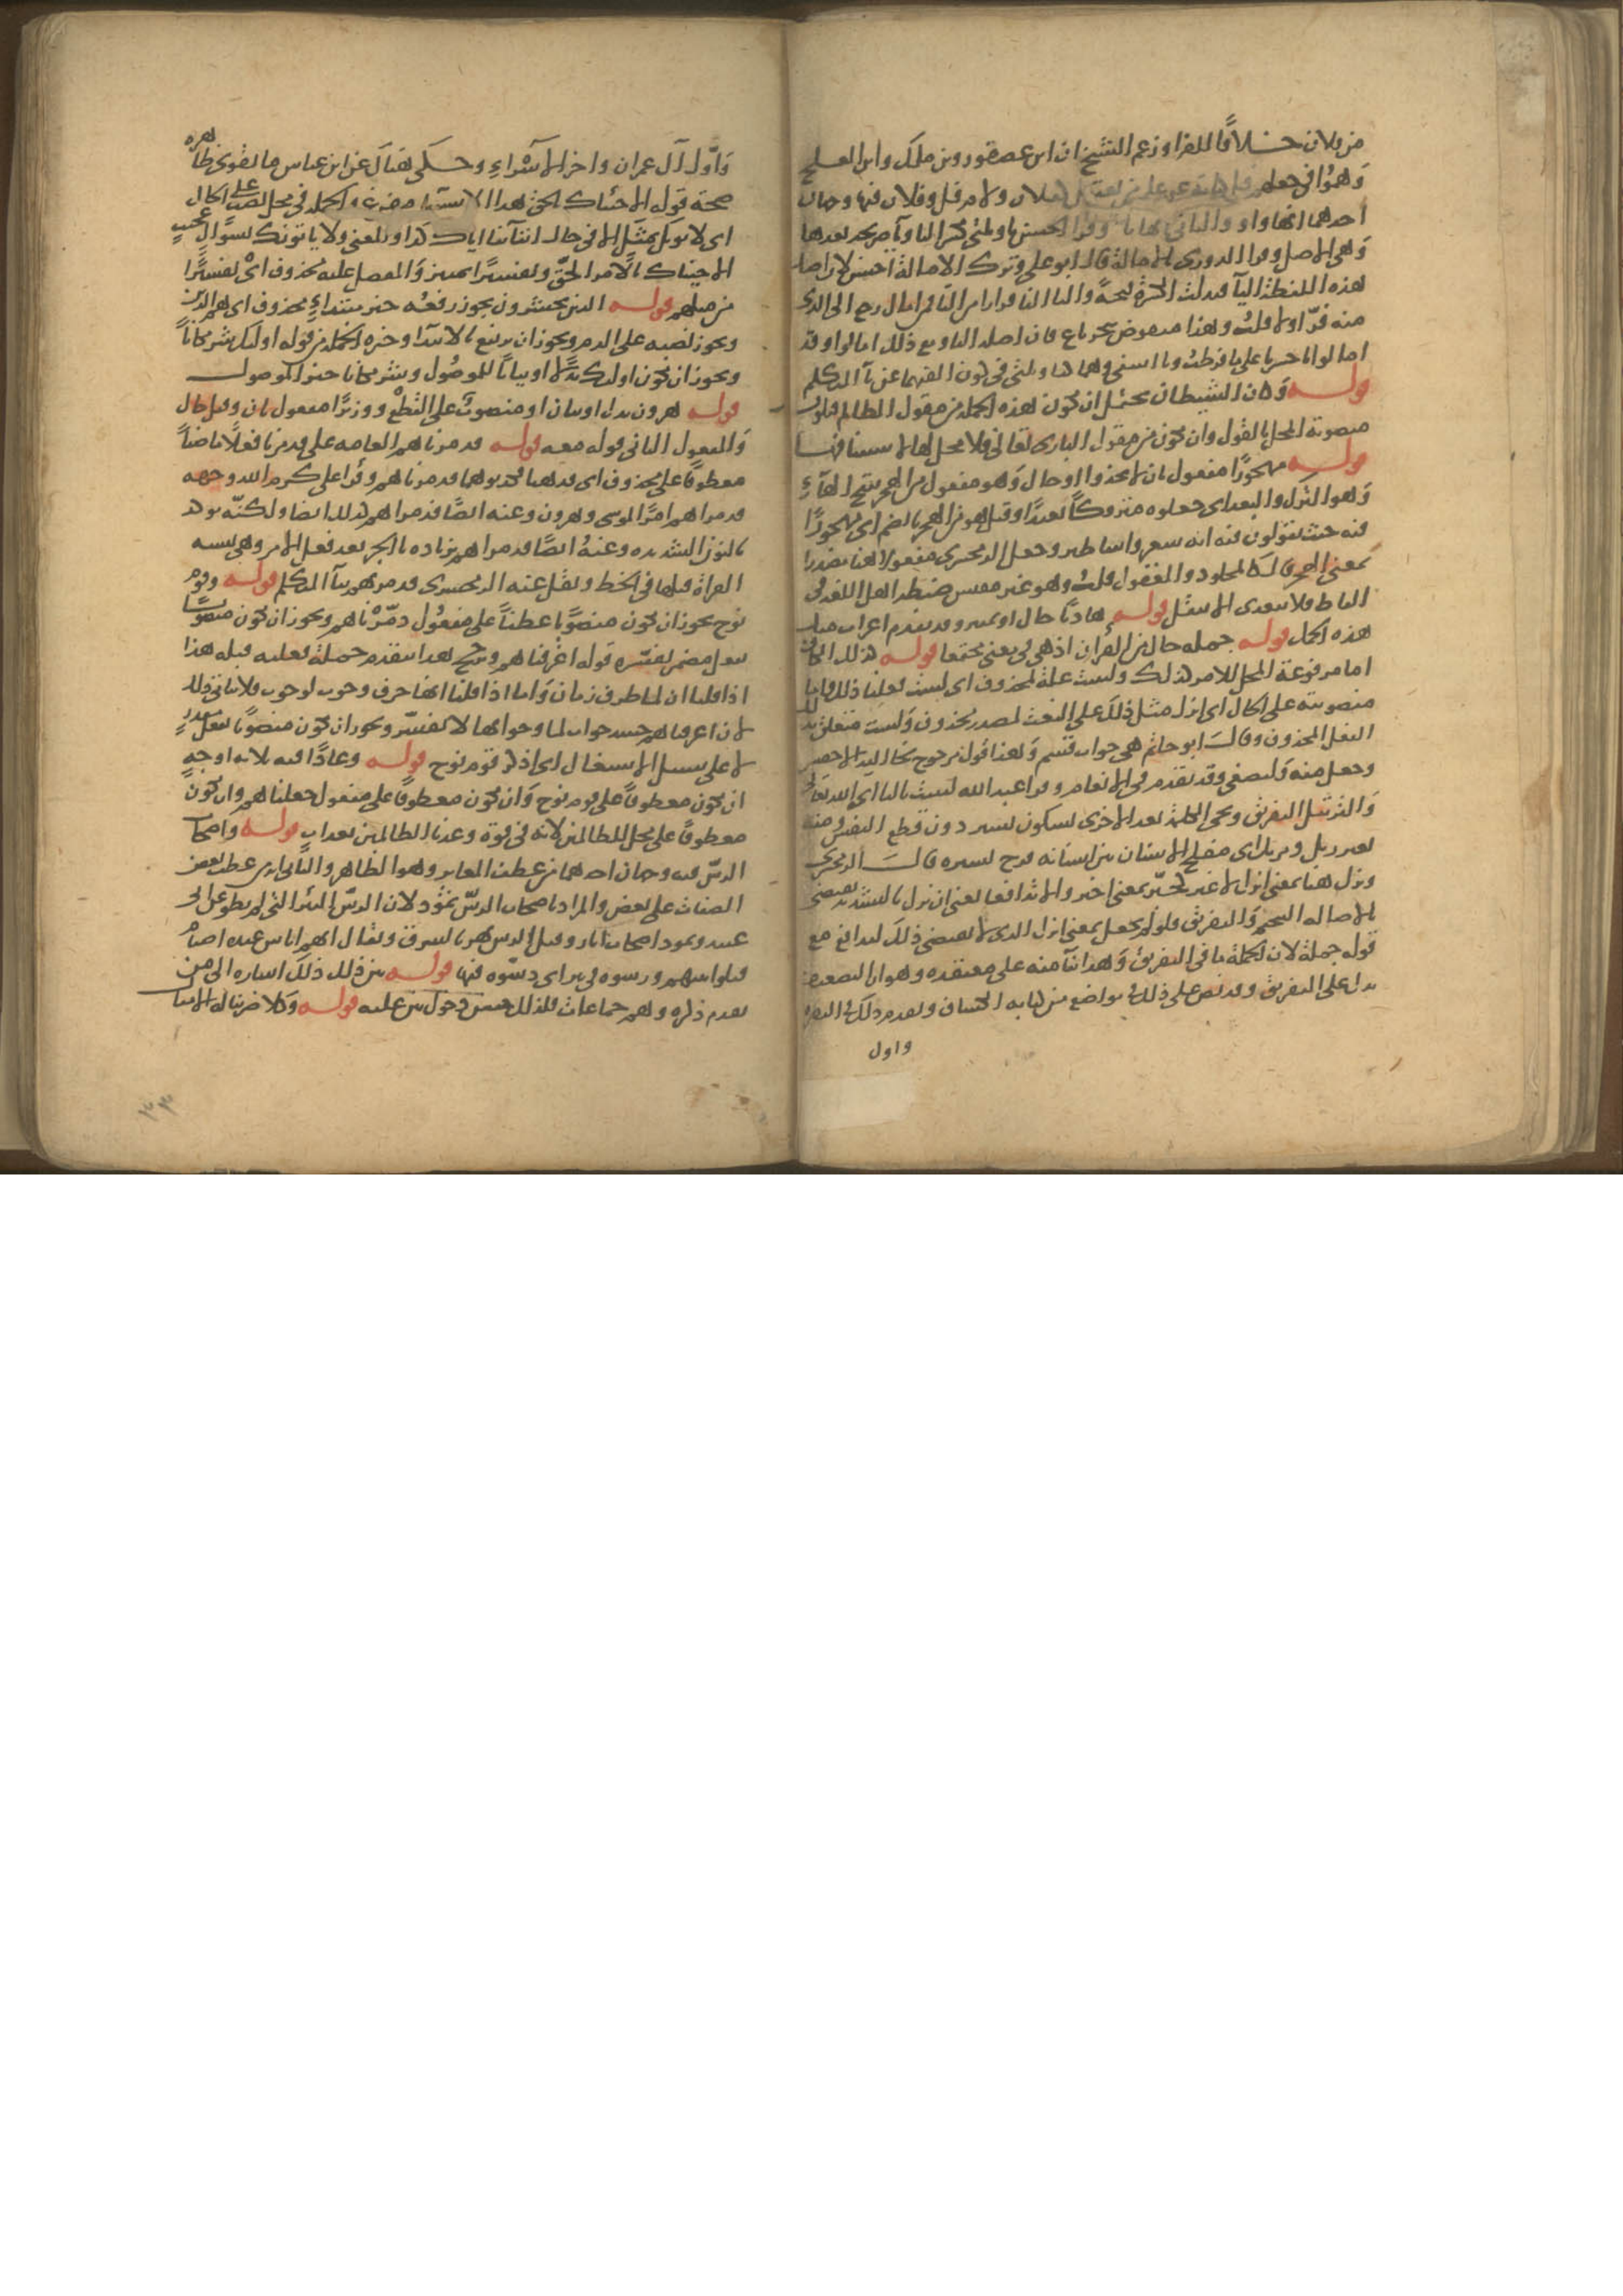 من فلان خلافا للفرا وزعم الشيخ ان ابن عصفور وبن ملك وابن العلج
وهموا في جعلهم فلان وفلانه فيها وجهان
احدهما انها واو والثاني انها يا وقرا الحسن يا ويلتي بكسر التا ويآ صريحه بعدها
وهي الاصل وقرا الدوري بالامالة قال ابو علي وترك الامالة احسن لان اصل
هذه اللفظة اليآ فبدلت الكسرة فتحة والياء الفا فرارا من اليا فمن امال رجع الى الذي
منه فر اولا قلت وهذا منقوض بنحو باع فان اصله اليا ومع ذلك امالوا وقد
امالوا يا حسرتا على ما فرطت ويا اسفي وهما كيا ويلتي في كون الفهما عن يآ المتكلم
قوله وكان الشيطان يحتمل ان تكون هذه الجملة من مقول الظالم فتكون
منصوبة المحل بالقول وان تكون من مقول الباري تعالى فلا محل لها لاستينافها
قوله مهجورا مفعول ثان لاتخذوا او حال وهو مفعول من الهجر بفتح الهآء
وهو الترك والبعد اي جعلوه متروكا بعيدا وقيل هو من الهجر بالضم اي مهجورا
فيه حيث يقولون فيه انه سحر واساطير وجعل الزمخشري مفعولا هنا مصدرا
بمعنى الهجر قال كالمجلود والمعقول قلت وهو غير مقيس ضبطه اهل اللغة في
الفاظ فلا يتعدى الا بنقل قوله هاديا حال او تمييز وقد تقدم اعراب مثل
هذه الجمل قوله جملة حال من القران اذ هي في معنى مجتمعا قوله كذلك الكاف
اما مرفوعة المحل للامر كذلك ولنثبت علة لمحذوف اي لنثبت فعلنا ذلك واما
منصوبته على الحال اي انزل مثل ذلك على النعت لمصدر محذوف ولنثبت متعلق بذلك
الفعل المحذوف وقال ابو حاتم هي جواب قسم وهذا قول مرجوح نحا اليه الاخفش
وجعل منه ولتصغى وقد تقدم في الانعام وقرا عبد الله ليثبت باليا اي الله تعالى
والترتيل التفريق ومجي الكلمة بعد الاخرى بسكون يسير دون قطع النفس ومنه
ثغر رتل ومرتل اي مفلج الاسنان بين اسنانه فرج يسيره قال الزمخشري
ونزل هنا بمعنى انزل لا غير كخبر بمعنى اخبر والا تدافعا يعني ان نزل بالتشديد يقتضي
بالاصالة التنجيم والتفريق فلو لم يجعل بمعنى انزل الذي لا يقتضي ذلك لتدافع مع
قوله جملة لان الجملة تنافي التفريق وهذا بنآ منه على معتقده وهو ان التضعيف
يدل على التفريق وقد نص على ذلك في مواضع من كتابه الكشاف وتقدم ذلك في البقره
واول
واول آل عمران واخر الاسراء وحكى هناك عن ابن عباس ما يقوى ظاهره
صحة قوله الا جئناك بالحق هذا الاستثنا مفرغ والجملة في محل نصب على الحال
اي لا يوتك بمثل الا في حال ايتآئنا اياك كذا والمعنى ولا ياتونك بسؤال عجيب
الا جيناك بالامر الحق وتفسيرا تمييز والمفضل عليه محذوف اي تفسيرا
من مثلهم قوله الذين يحشرون يجوز رفعه خبر مبتداء محذوف اي هم الذين
ويجوز نصبه على الذم ويجوز ان يرتفع بالابتدا وخبره الجملة من قوله اولئك شر مكانا
ويجوز ان يكون اولئك بدلا او بيانا للموصول وشر مكانا خبر الموصول
قوله هرون بدل او بيان او منصوب على القطع ووزيرا مفعول ثان وقيل حال
والمفعول الثاني قوله معه قوله فدمرناهم العامه على فدمرنا فعلا ماضيا
معطوفا على محذوف اي فذهبا فكذبوهما فدمرناهم وقرا علي كرم الله وجهه
فدمراهم امرا لموسى وهرون وعنه ايضا فدمرانهم كذلك ايضا ولكنه موكد
بالنون الشديده وعنه ايضا فدمرا بهم بزياده بآ الجر بعد فعل الامر وهي تشبه
القراة قبلها في الخط ونقل عنه الزمخشري فدمرتهم بتآ المتكلم قوله وقوم
نوح يجوز ان يكون منصوبا عطفا على مفعول دمرناهم ويجوز ان يكون منصوبا
بفعل مضمر يفسره قوله اغرقناهم ورجح هذا بتقدم جملة فعلية قبله هذا
اذا قلنا ان لما ظرف زمان واما اذا قلنا انها حرف وجوب لوجوب فلا يتاتى ذلك
لان اغرقناهم حينيذ جواب لما وجوابها لا يفسر ويجوز ان يكون منصوبا بفعل مقدر
لا على سبيل الاشتغال اي اذكر قوم نوح قوله وعادا فيه ثلاثه اوجه
ان يكون معطوفا على قوم نوح وان يكون معطوفا على مفعول جعلناهم وان يكون
معطوفا على محل للظالمين لانه في قوة وعدنا الظالمين بعذاب قوله واصحاب
الرس فيه وجهان احدهما من عطف المغاير وهو الظاهر والثاني انه من عطف بعض
الصفات على بعض والمراد باصحاب الرس ثمود لان الرس البئر التي لم تطو عن ابي
عبيد وثمود اصحاب آبار وقيل الرس نهر بالمشرق ويقال انهم اناس عبدة اصنام
قتلوا نبيهم ورسوه في بير اي دسوه فيها قوله بين ذلك ذلك اشاره الى من
تقدم ذكره وهم جماعات فلذلك حسن دخول بين عليه قوله وكلا ضربنا له الامثال
٣٣